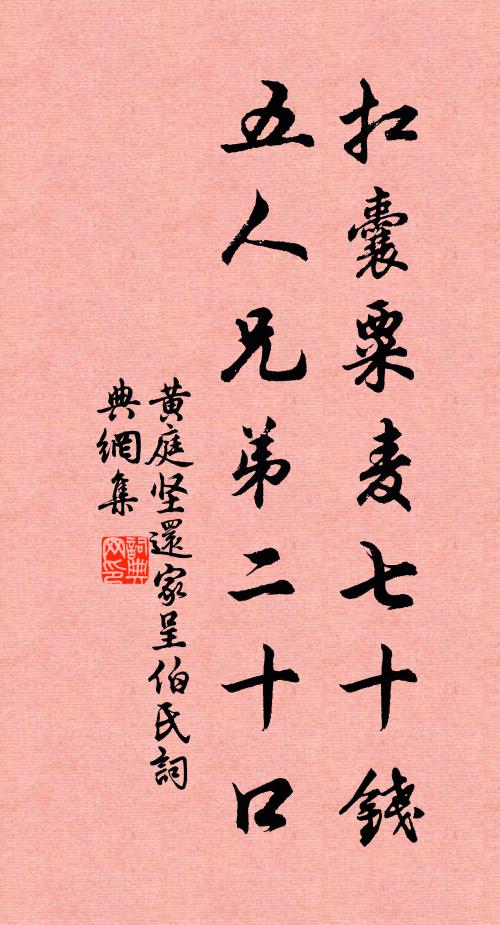 扛囊粟麦七十錢
五人兄弟二十口
黄庭坚還家呈伯氏詞
典網集
詞典網印